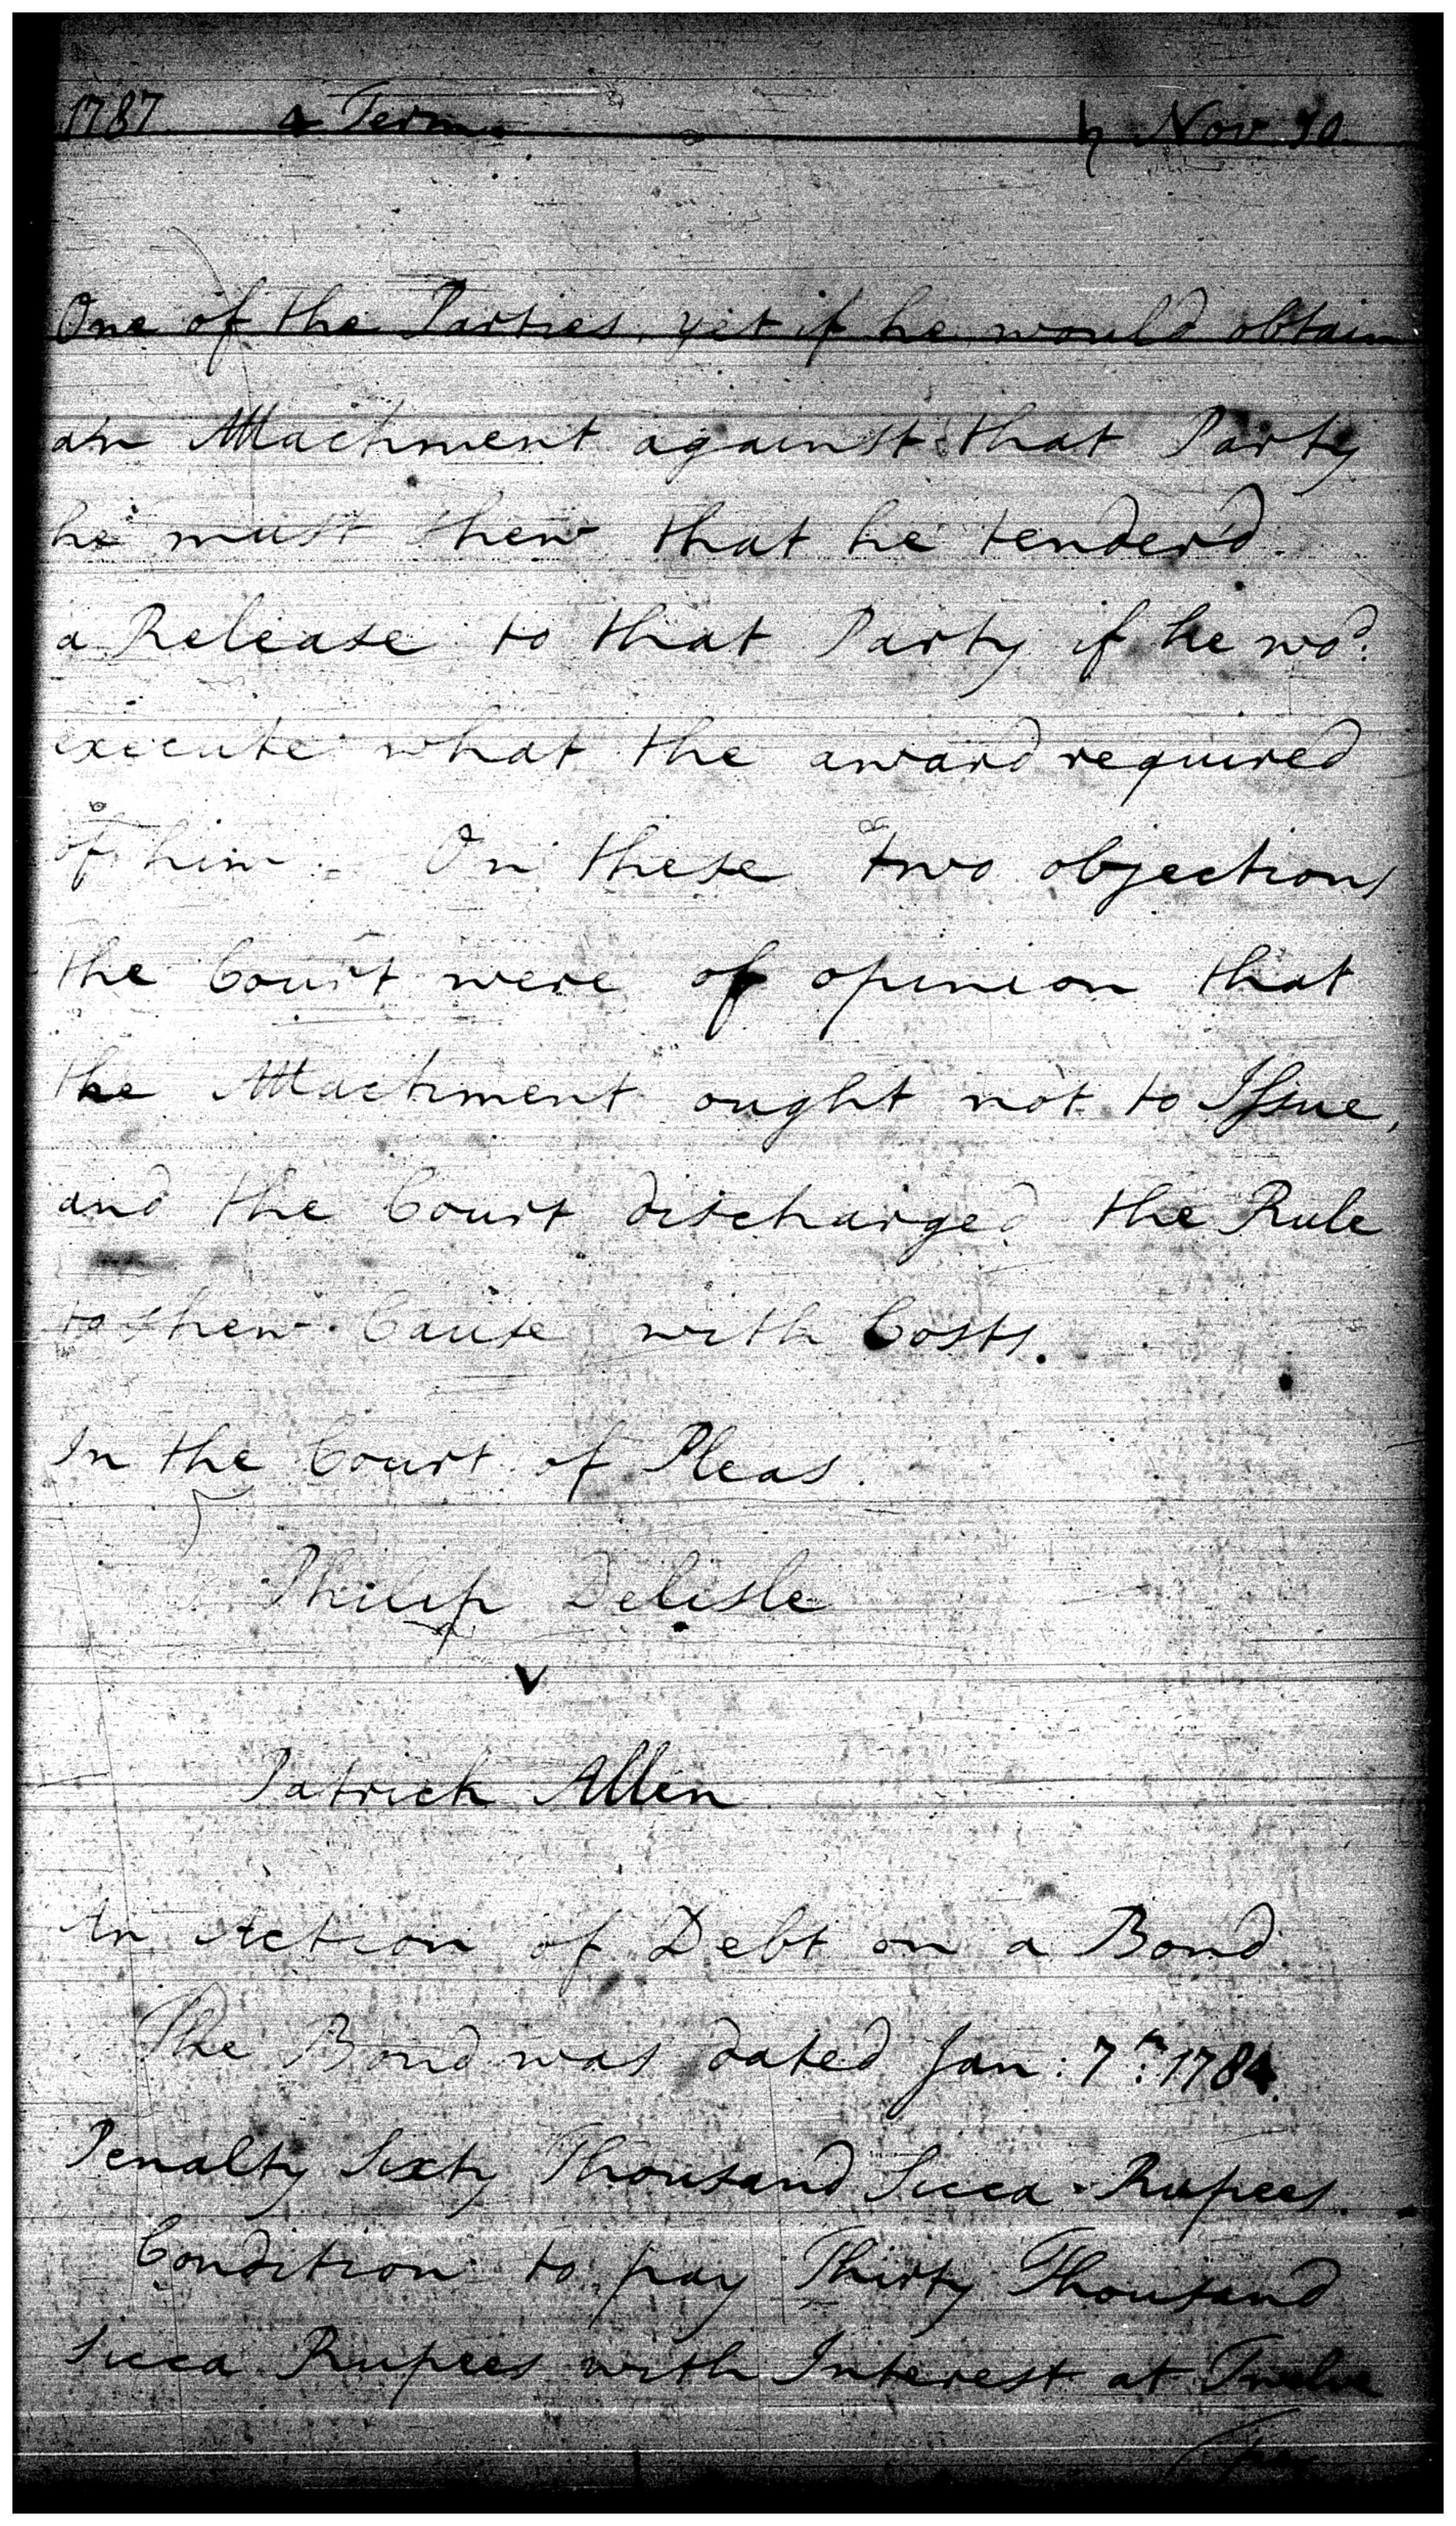 1787 4 Term ♄ Nov 10
One of the Parties, yet if he would obtain
an Attachment against that Party
he must shew that he tenderd
a Release to that Party if he wo.d
execute what the award required
of him. On these two objections
the Court were of opinion that
the Attachment ought not to Issue,
and the Court discharged the Rule
to shew Cause with Costs.
In the Court of Pleas.
Philip Delisle
v
Patrick Allen
An Action of Debt on a Bond.
The Bond was dated Jan: 7th: 1784.
Penalty Sixty Thousand Sicca Rupees.
Condition to pay Thirty Thousand
Sicca Rupees with Interest at Twelve